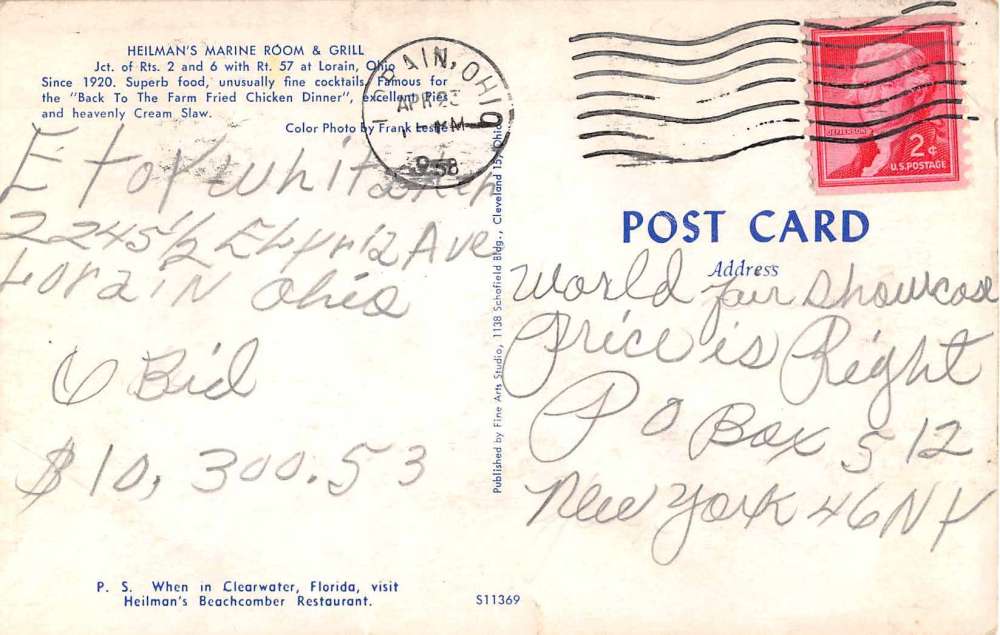 HEILMAN'S MARINE ROOM & GRILL
Jct. of Rts. 2 and 6 with Rt. 57 at Lorain, Ohio
Since 1920. Superb food, unusually fine cocktails. Famous for
the "Back To The Farm Fried Chicken Dinner", excellent Pies
and heavenly Cream Slaw.
Color Photo by Frank Leslie
LORAIN, OHIO
APR 23
PM
1958
E Toy Whitaker
2245½ Elyria Ave
Lorain Ohio
6 Bid
$10,300.53
P. S. When in Clearwater, Florida, visit
Heilman's Beachcomber Restaurant.
Published by Fine Arts Studio, 1138 Schofield Bldg., Cleveland 15, Ohio
S11369
JEFFERSON
2¢
U.S. POSTAGE
POST CARD
Address
World fair showcase
Price is Right
P O Box 512
New York 46 NY